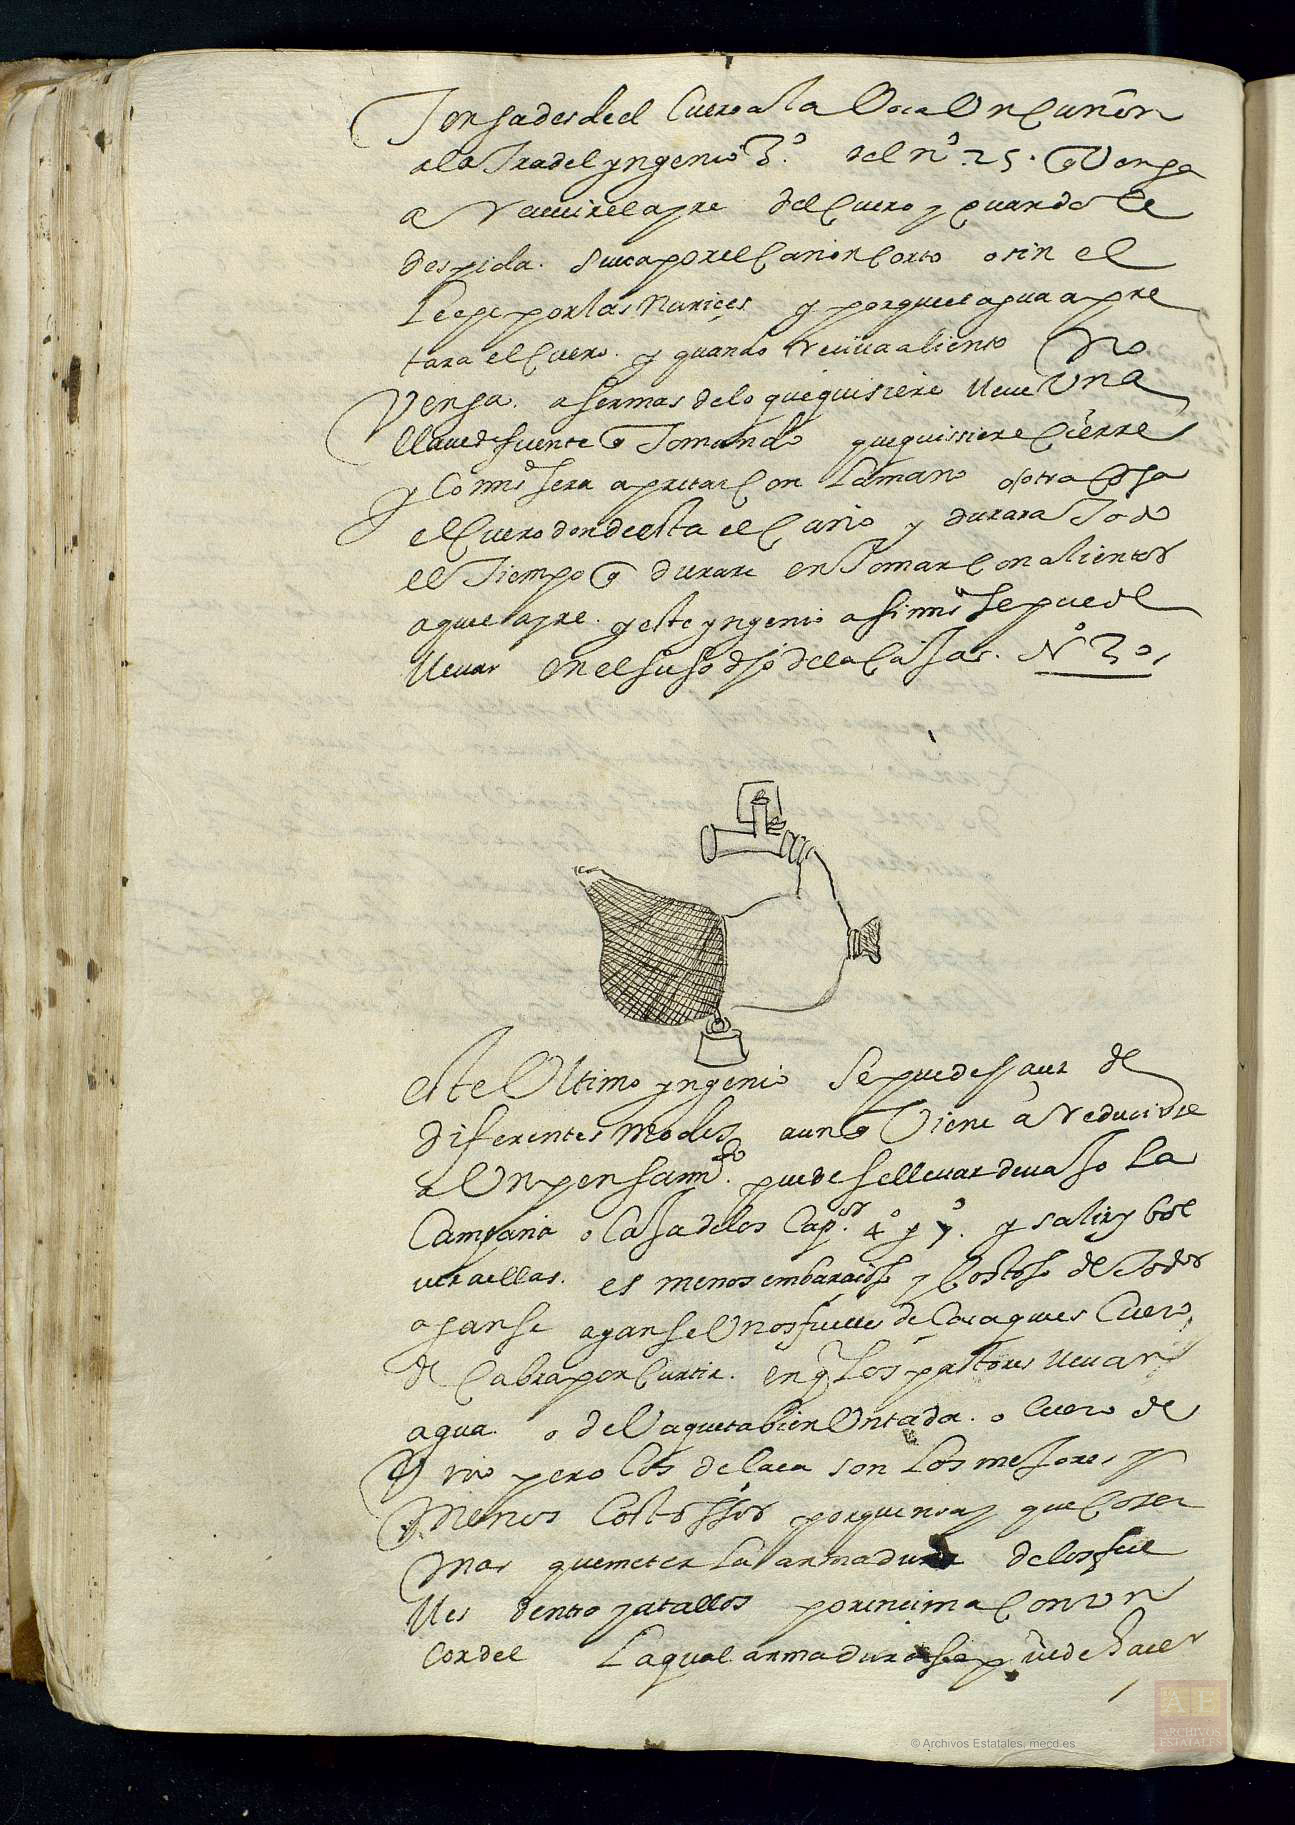 Tenga desde el Cuero a la Boca Un Cañon
a la Traza del yngenio 3º. del nº. 25. q Venga
a Reciuir el ayre del Cuero y quando le
despida. Sueca por el Cañon Corto o sin el
le eçe por las Narices y porque el agua apre
tara el Cuero. y quando Reciua aliento No
Venga. a ser mas de lo que quisiere lleue Una
llaue de fuente q Tomando que quissiere Cierre
y Lo mismo sera apretar Con La mano o otra Cosa
el Cuero donde esta el Caño y durara Todo
el Tiempo q durare en Tomar Con alientos
aquel ayre. y este yngenio assi mismo se puede
lleuar en el suso dho de la Caxa. Nº 30,
este Ultimo yngenio Se puede Haçer de
diferentes modos aunq Viene a Reducirse
a Un pensamto. puedesse lleuar deuaxo La
Campana o Caxa de los Capos. 4º y 7º. y salir y bol
uer a ellas. es menos embaraçoso y Costoso de Todos
aganse aganse Unos fuelles de Cueros
de Cabra por Curtir. en q Los pastores lleuan
agua. o de Vaqueta bien Untada. o Cuero de
Vino pero los de laca son Los mejores y
Menos Costossos porque no ay que Coser
Mas que meter La armadura de los fue
lles dentro y atallos por encima Con Un
Cordel La qual armadura se puede hacer
© Archivos Estatales, mecd.es
AE
ARCHIVOS
ESTATALES